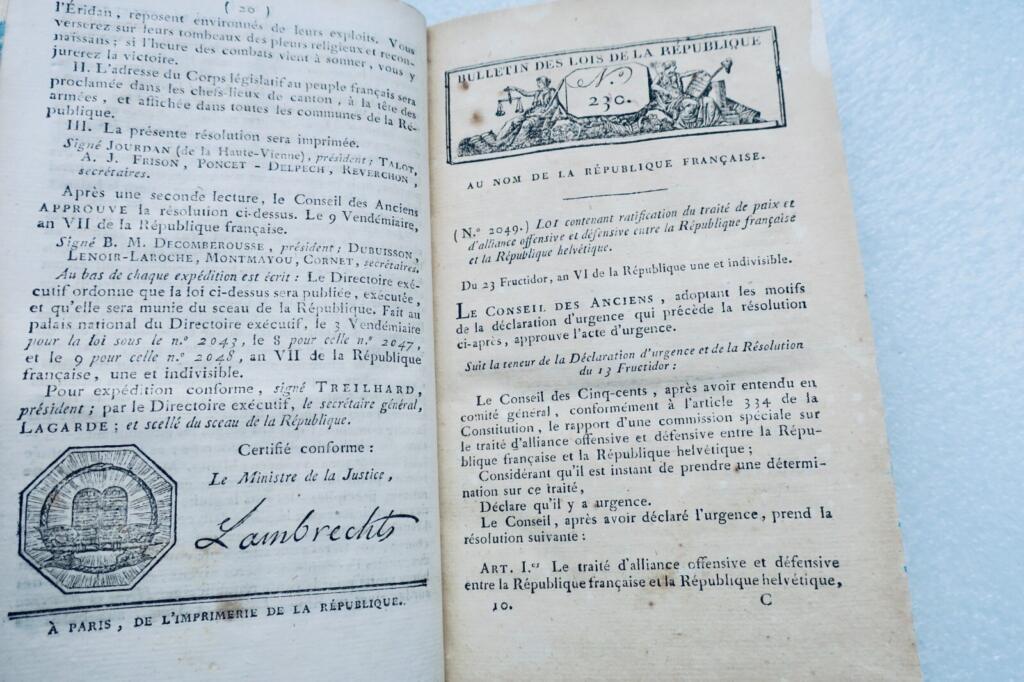 ( 20 )
l'Éridan, reposent environnés de leurs exploits. Vous
verserez sur leurs tombeaux des pleurs religieux et recon-
naissans; si l'heure des combats vient à sonner, vous y
jurerez la victoire.
II. L'adresse du Corps législatif au peuple français sera
proclamée dans les chefs-lieux de canton, à la tête des
armées, et affichée dans toutes les communes de la Ré-
publique.
III. La présente résolution sera imprimée.
Signé JOURDAN (de la Haute-Vienne), président; TALOT,
A. J. FRISON, PONCET-DELPECH, REVERCHON,
secrétaires.
Après une seconde lecture, le Conseil des Anciens
APPROUVE la résolution ci-dessus. Le 9 Vendémiaire,
an VII de la République française.
Signé B. M. DECOMBEROUSSE, président; DUBUISSON,
LENOIR-LAROCHE, MONTMAYOU, CORNET, secrétaires.
Au bas de chaque expédition est écrit : Le Directoire exé-
cutif ordonne que la loi ci-dessus sera publiée, exécutée,
et qu'elle sera munie du sceau de la République. Fait au
palais national du Directoire exécutif, le 3 Vendémiaire
pour la loi sous le n.º 2043, le 8 pour celle n.º 2047,
et le 9 pour celle n.º 2048, an VII de la République
française, une et indivisible.
Pour expédition conforme, signé TREILHARD,
président; par le Directoire exécutif, le secrétaire général,
LAGARDE; et scellé du sceau de la République.
Certifié conforme :
Le Ministre de la Justice,
Lambrechts
À PARIS, DE L'IMPRIMERIE DE LA RÉPUBLIQUE.
BULLETIN DES LOIS DE LA RÉPUBLIQUE
N.º
230.
AU NOM DE LA RÉPUBLIQUE FRANÇAISE.
(N.º 2049.) LOI contenant ratification du traité de paix et
d'alliance offensive et défensive entre la République française
et la République helvétique.
Du 23 Fructidor, an VI de la République une et indivisible.
LE CONSEIL DES ANCIENS, adoptant les motifs
de la déclaration d'urgence qui précède la résolution
ci-après, approuve l'acte d'urgence.
Suit la teneur de la Déclaration d'urgence et de la Résolution
du 13 Fructidor :
Le Conseil des Cinq-cents, après avoir entendu en
comité général, conformément à l'article 334 de la
Constitution, le rapport d'une commission spéciale sur
le traité d'alliance offensive et défensive entre la Répu-
blique française et la République helvétique;
Considérant qu'il est instant de prendre une détermi-
nation sur ce traité,
Déclare qu'il y a urgence.
Le Conseil, après avoir déclaré l'urgence, prend la
résolution suivante :
ART. I.er Le traité d'alliance offensive et défensive
entre la République française et la République helvétique,
10.
C